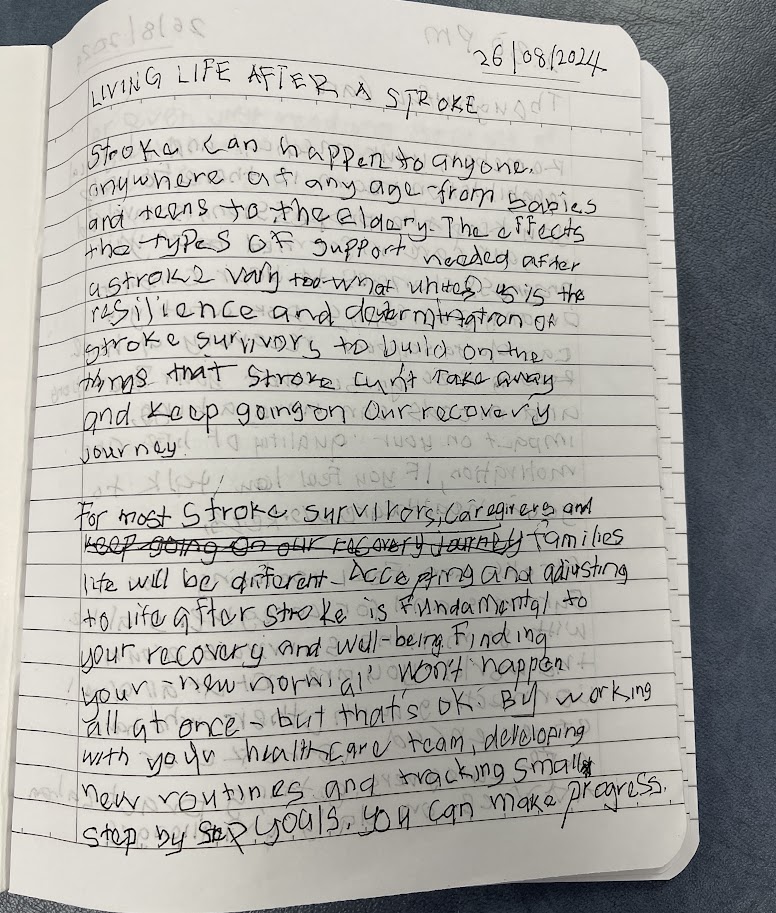 26/08/2024
LIVING LIFE AFTER A STROKE
Stroke can happen to anyone.
anywhere at any age-from babies
and teens to the eldary. The effects
the types of support needed after
a stroke vary too what unites us is the
resilience and determination of
stroke survivors to build on the
things that stroke can't take away
and keep going on our recovery
journey.
For most stroke survivors, caregivers and
keep going on our recovery journey families
life will be different. Accepting and adjusting
to life after stroke is fundamental to
your recovery and well-being. Finding
your 'new normal' won't happen
all at once - but that's ok. By working
with your healthcare team, developing
new routines and tracking small
step by step goals, you can make progress.